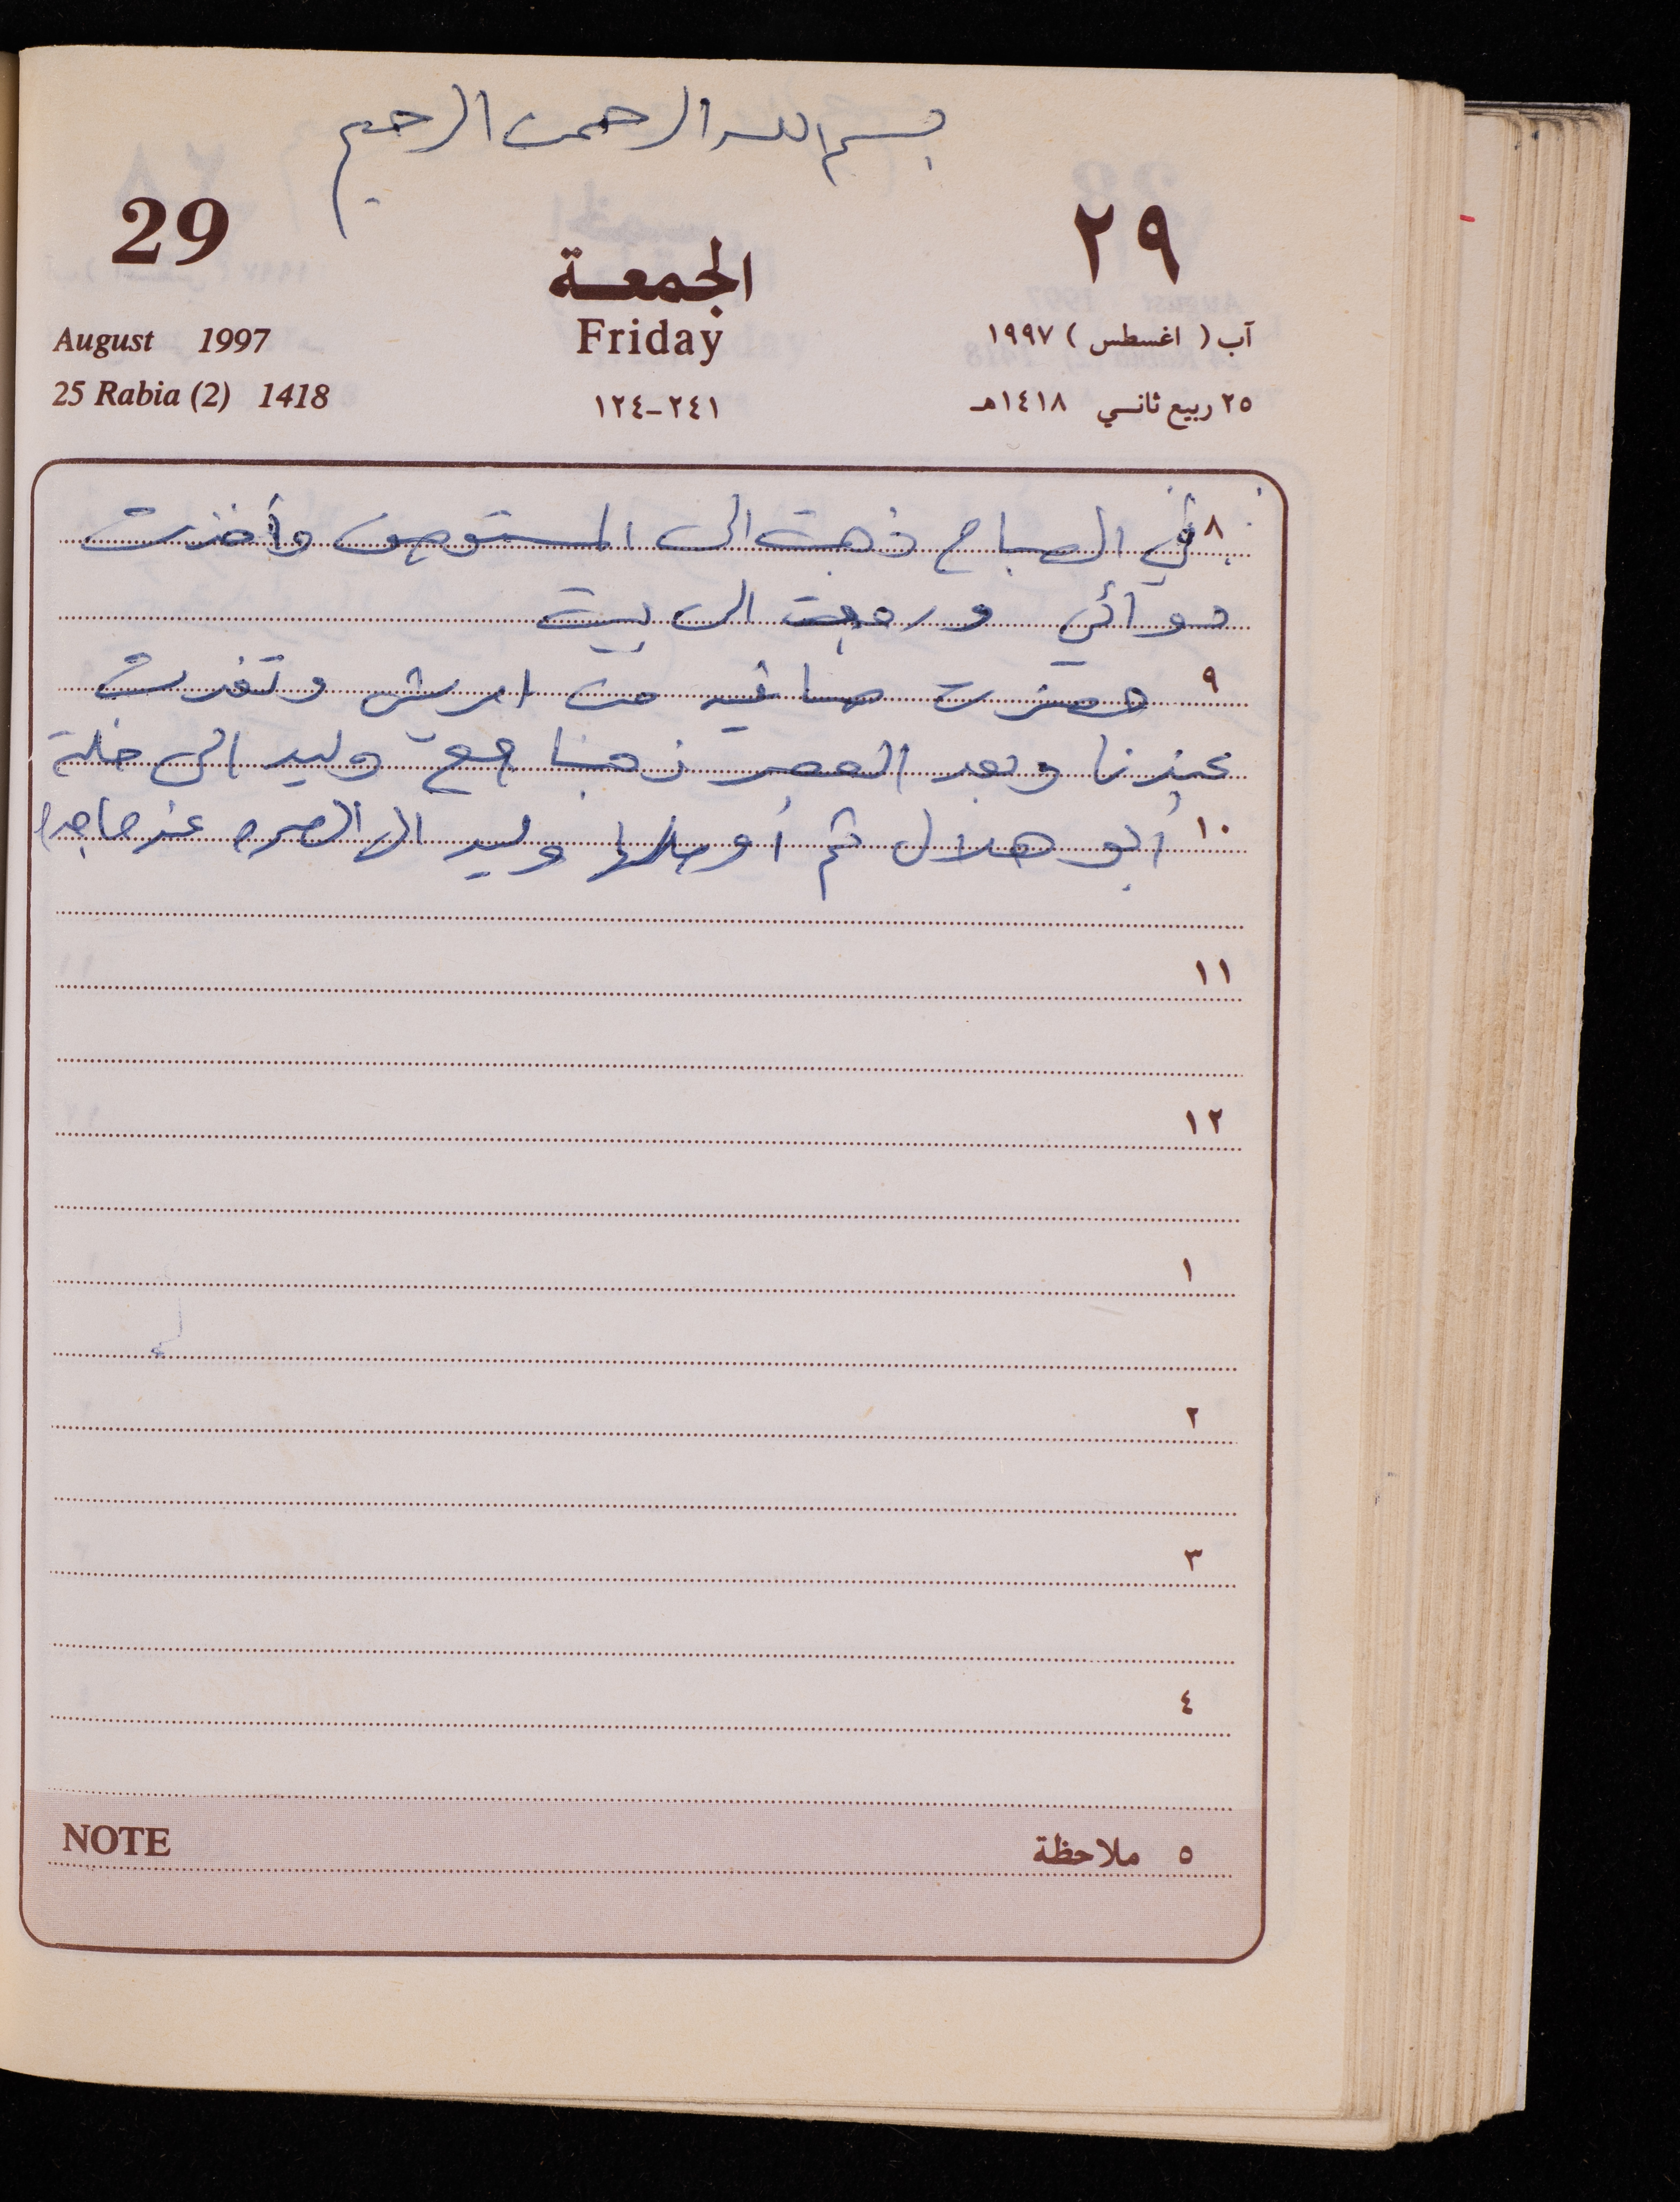 بسم الله الرحمن الرحيم
29
٢٩
الجمعة
Friday
August 1997
آب ( اغسطس ) ١٩٩٧
25 Rabia (2) 1418
٢٤١-١٢٤
٢٥ ربيع ثاني ١٤١٨هـ
٨ في الصباح ذهبت الى المستوصف وأخذت
دوآئي ورجعت الى بيت
٩ حضرت صافيه من وتغدت
عندنا وبعد العصر ذهبنا مع وليد الى خلة
١٠ أبو هلال ثم أوصلها وليد الى عند ماجد
١١
١٢
١
٢
٣
٤
NOTE
٥ ملاحظة